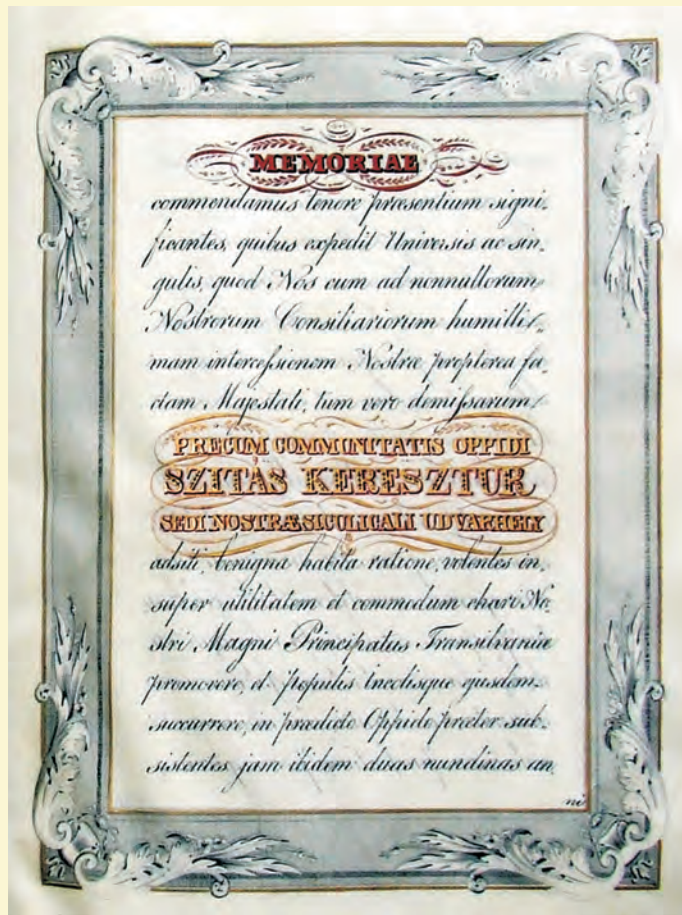 MEMORIAE
commendamus tenore præsentium signi-
ficantes, quibus expedit Universis ac sin-
gulis, quod Nos cum ad nonnullorum
Nostrorum Consiliariorum humilli-
mam intercessionem Nostræ propterea fa-
ctam Majestati, tum vero demissarum
PRECUM COMMUNITATIS OPPIDI
SZITÁS KERESZTUR
SEDI NOSTRÆ SICULICALI UDVARHELY
adsiti, benigna habita ratione, volentes in-
super utilitatem et commodum chari No-
stri Magni Principatus Transilvaniæ
promovere, et populis incolisque ejusdem
succurrere, in prædicto Oppido præter sub-
sistentes jam ibidem duas nundinas an-
ni